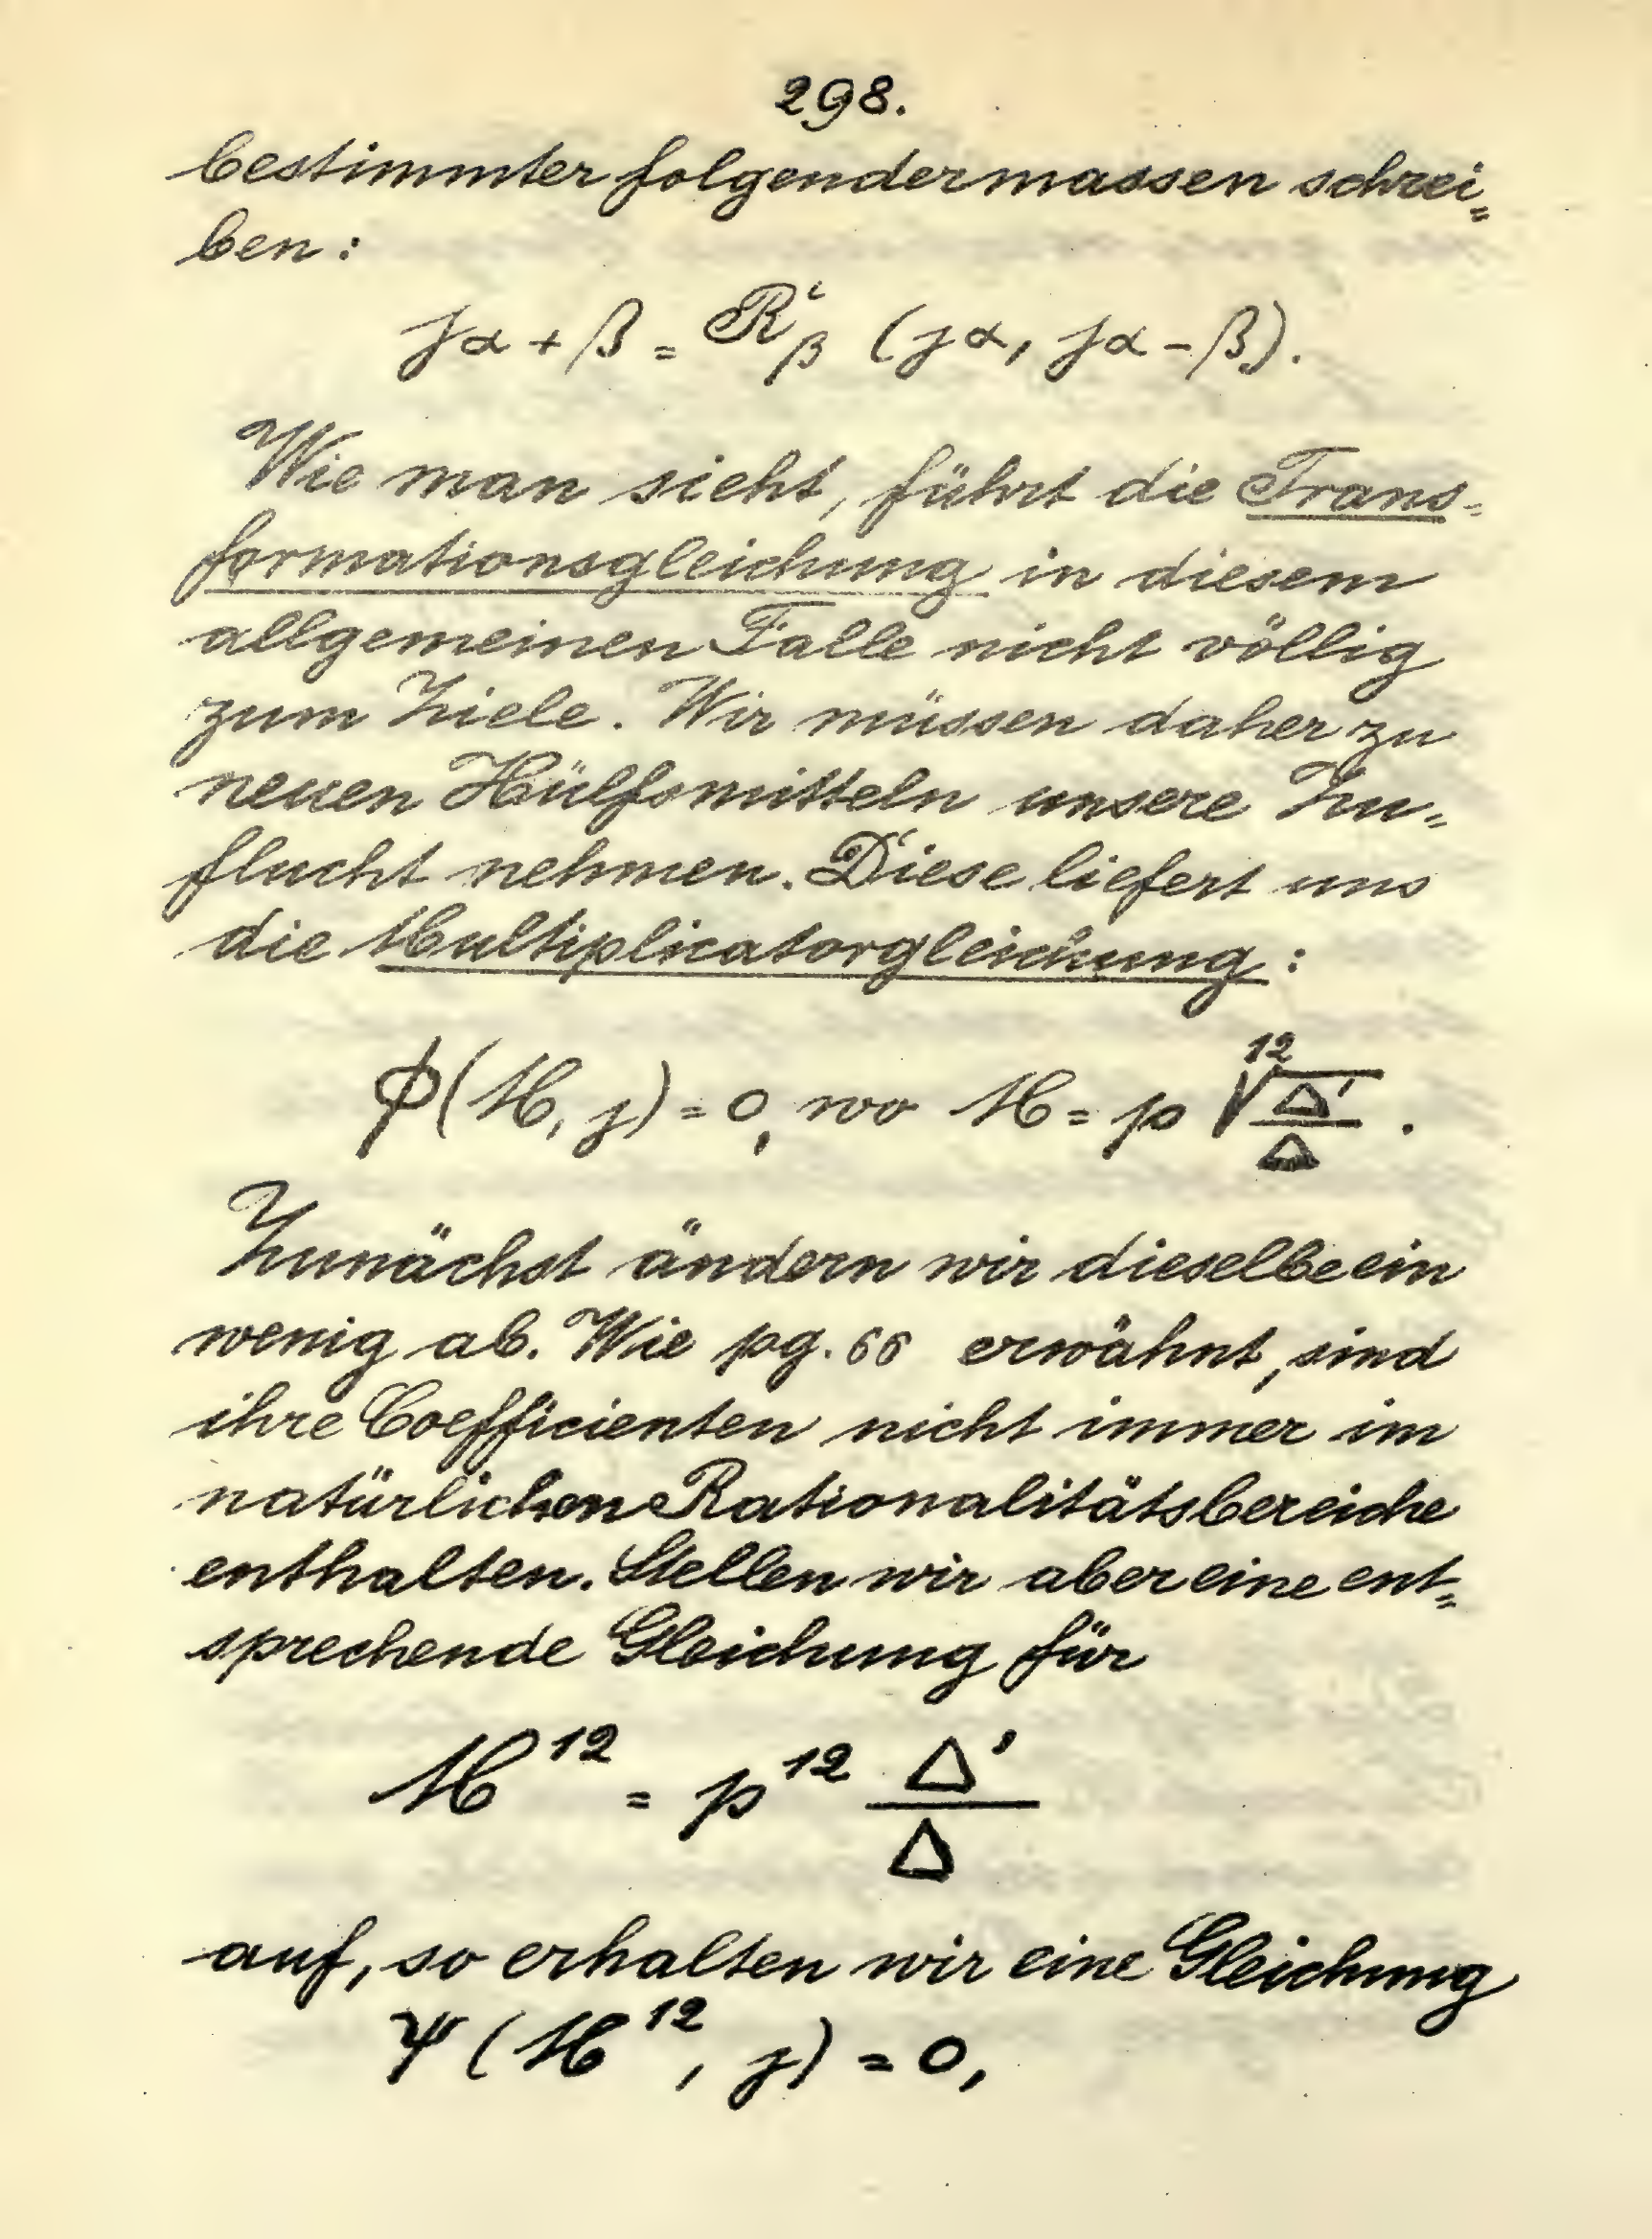 298.
bestimmter folgendermassen schrei=
ben:
jα+β = R'β (jα, jα-β).
Wie man sieht, führt die Trans=
formationsgleichung in diesem
allgemeinen Falle nicht völlig
zum Ziele. Wir müssen daher zu
neuen Hülfsmitteln unsere Zu=
flucht nehmen. Diese liefert uns
die Multiplicatorgleichung:
ϕ(M, j) = 0, wo M = p ¹²√(Δ'/Δ).
Zunächst ändern wir dieselbe ein
wenig ab. Wie pg. 66 erwähnt, sind
ihre Coefficienten nicht immer im
natürlichen Rationalitätsbereiche
enthalten. Stellen wir aber eine ent=
sprechende Gleichung für
M¹² = p¹² Δ'/Δ
auf, so erhalten wir eine Gleichung
Ψ(M¹², j) = 0,